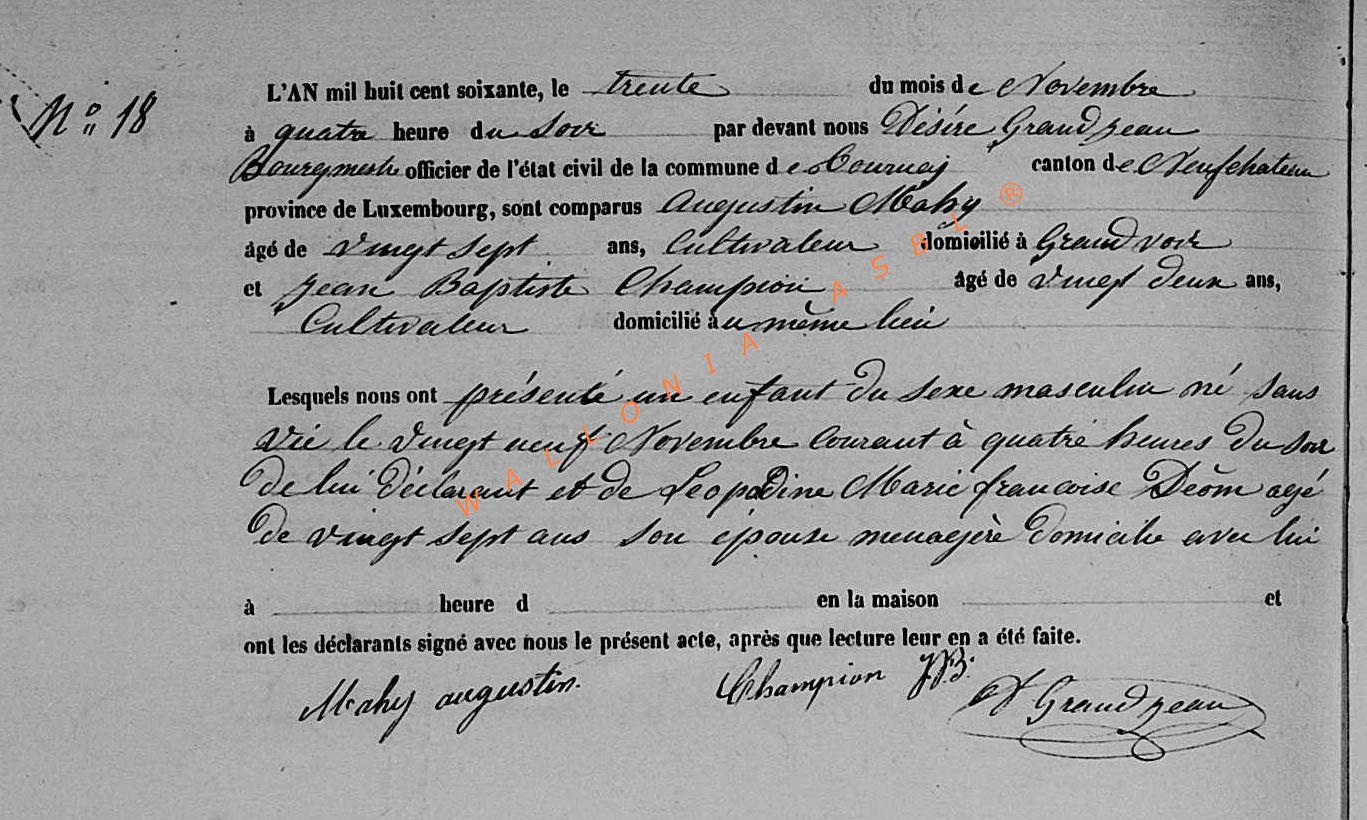 N° 18
L'AN mil huit cent soixante, le trente du mois de Novembre
à quatre heure du Soir par devant nous Désiré Grandjean
Bourgmestre officier de l'état civil de la commune de Tournay canton de Neufchateau
province de Luxembourg, sont comparus Augustin Mahy
âgé de vingt sept ans, Cultivateur domicilié à Grandvoir
et Jean Baptiste Champion âgé de vingt deux ans,
Cultivateur domicilié au même lieu
Lesquels nous ont présenté un enfant du sexe masculin né sans
vie le vingt neuf Novembre courant à quatre heures du soir
de lui déclarant et de Leopoldine Marie francoise Déom agé
de vingt sept ans son épouse menagère domicilie avec lui
à heure d en la maison et
ont les déclarants signé avec nous le présent acte, après que lecture leur en a été faite.
Mahy augustin. Champion J.B. D Grandjean
WALLONIA ASBL ®